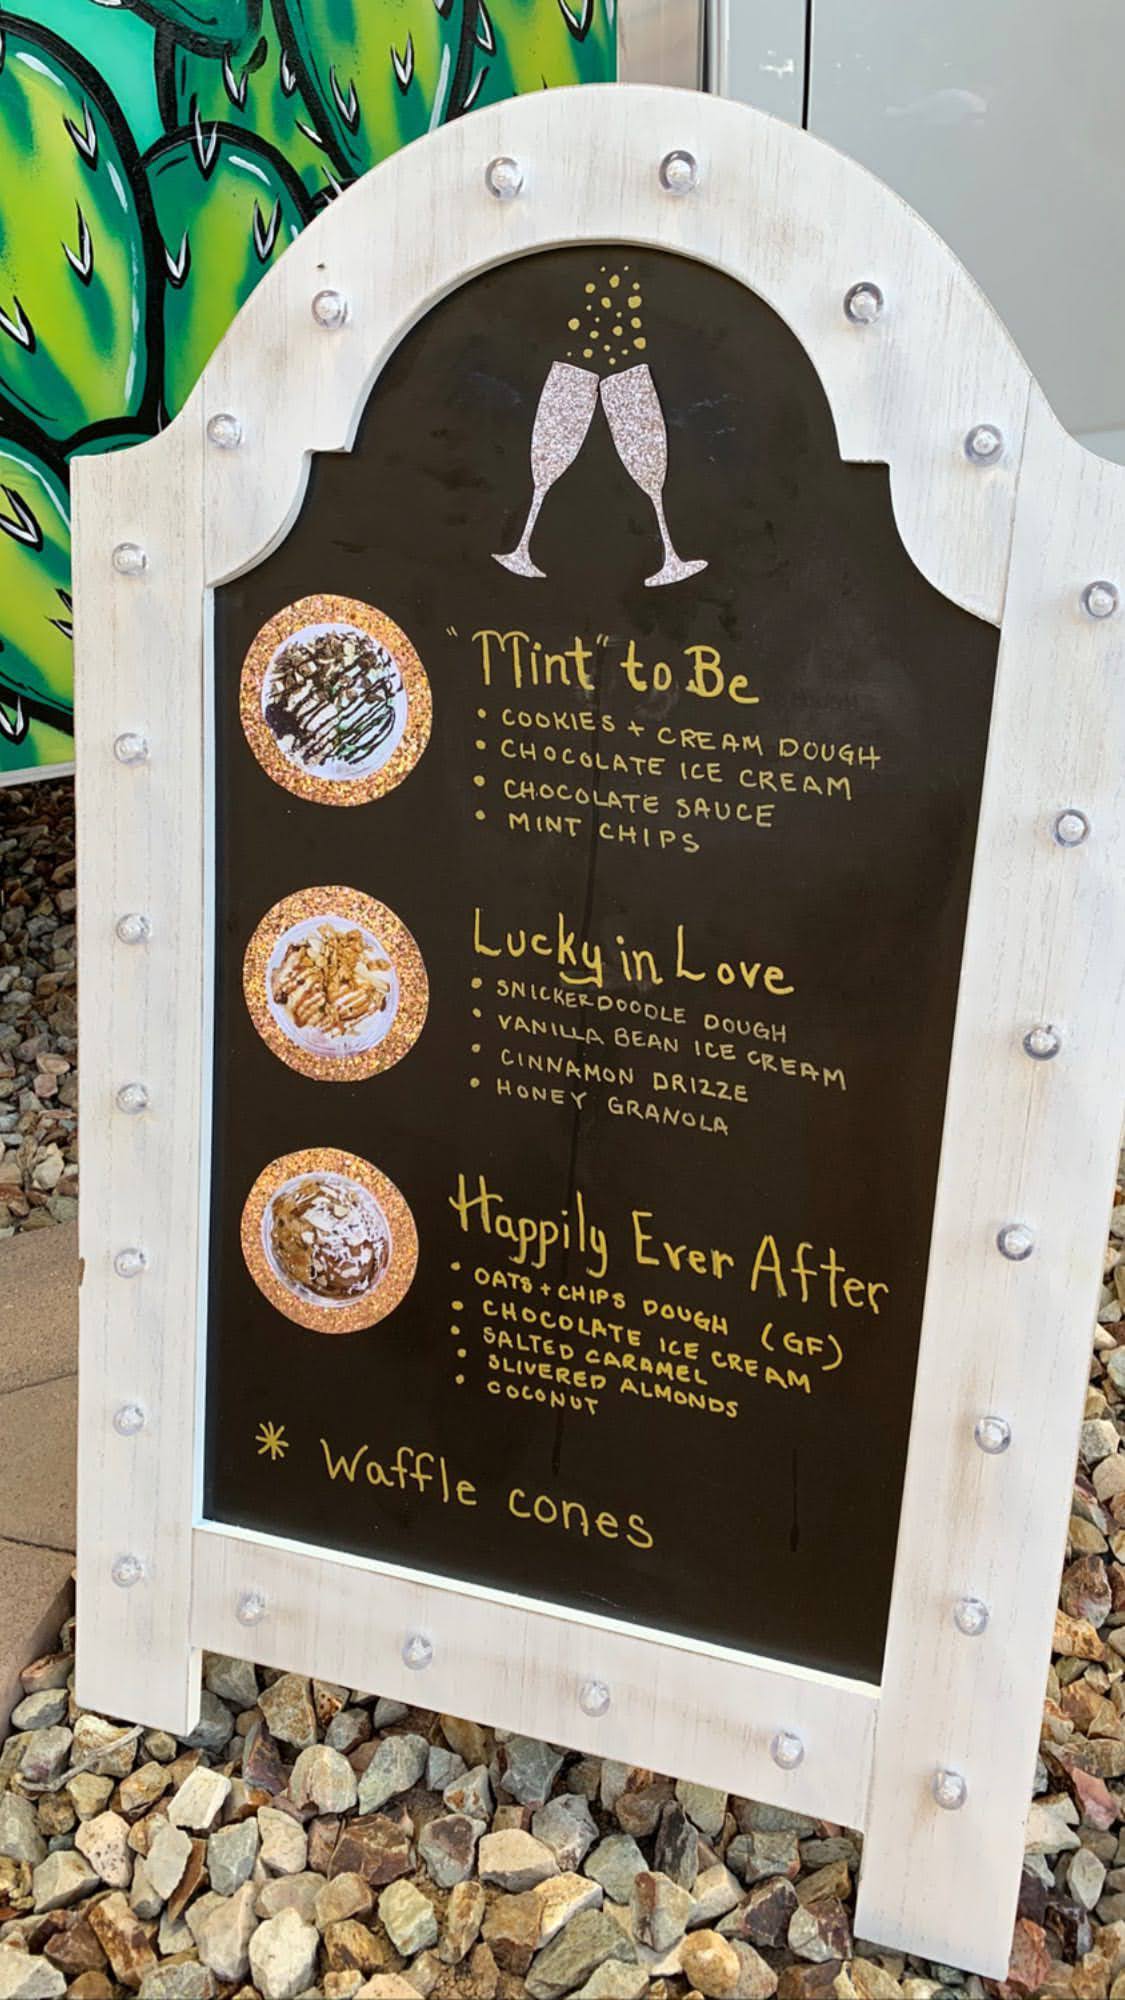 "Mint" to Be
• COOKIES + CREAM DOUGH
• CHOCOLATE ICE CREAM
• CHOCOLATE SAUCE
• MINT CHIPS
Lucky in Love
• SNICKERDOODLE DOUGH
• VANILLA BEAN ICE CREAM
• CINNAMON DRIZZE
• HONEY GRANOLA
Happily Ever After
• OATS + CHIPS DOUGH (GF)
• CHOCOLATE ICE CREAM
• SALTED CARAMEL
• SLIVERED ALMONDS
• COCONUT
* Waffle cones